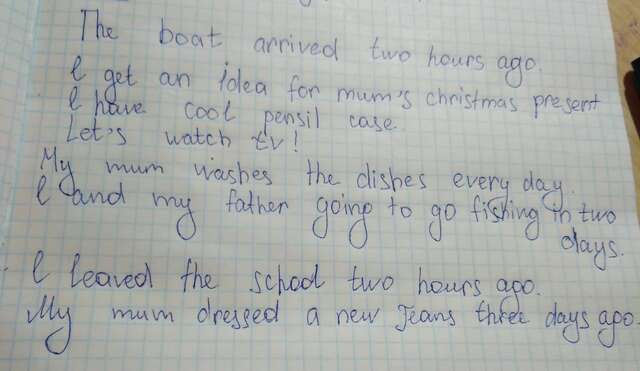 The boat arrived two hours ago.
I get an idea for mum's christmas present
I have cool pensil case.
Let's watch tv!
My mum washes the dishes every day.
I and my father going to go fishing in two
days.
I leaved the school two hours ago.
My mum dressed a new Jeans three days ago.